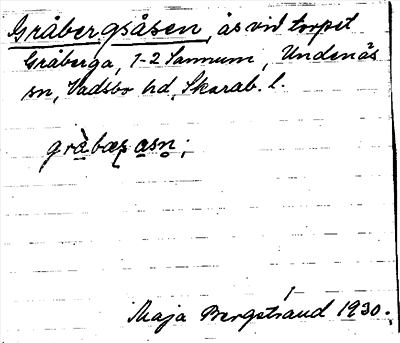 Gråbergsåsen, ås vid torpet
Gråberga, 1-2 Sannum, Undenäs
sn, Vadsbo hd, Skarab. l.
gràbæʀ asn;
Maja Bergstrand 1930.